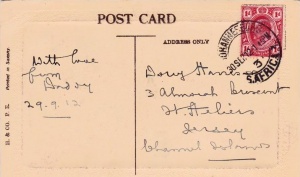 POST CARD
ADDRESS ONLY
With love
from
Daddy
29.9.12
Dory Harris
3 Almorah Crescent
St. Heliers
Jersey
Channel Islands
Printed in Saxony
H. & CO. P. E.
JOHANNES
30 SE
3
AFRICA